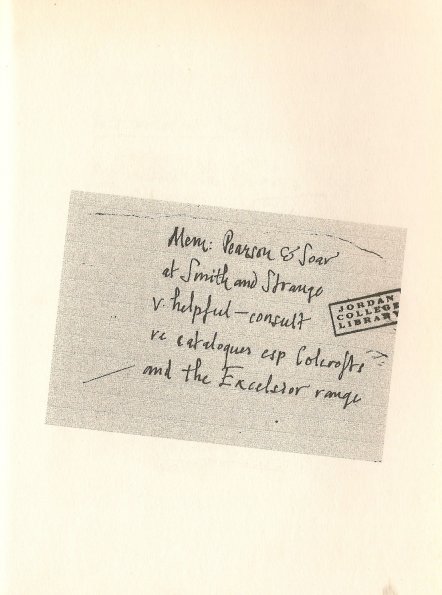 Mem: Pearson & Soar
at Smith and Strange
v. helpful – consult
re catalogues esp Colcrofts
and the Excelsior range
JORDAN
COLLEGE
LIBRARY